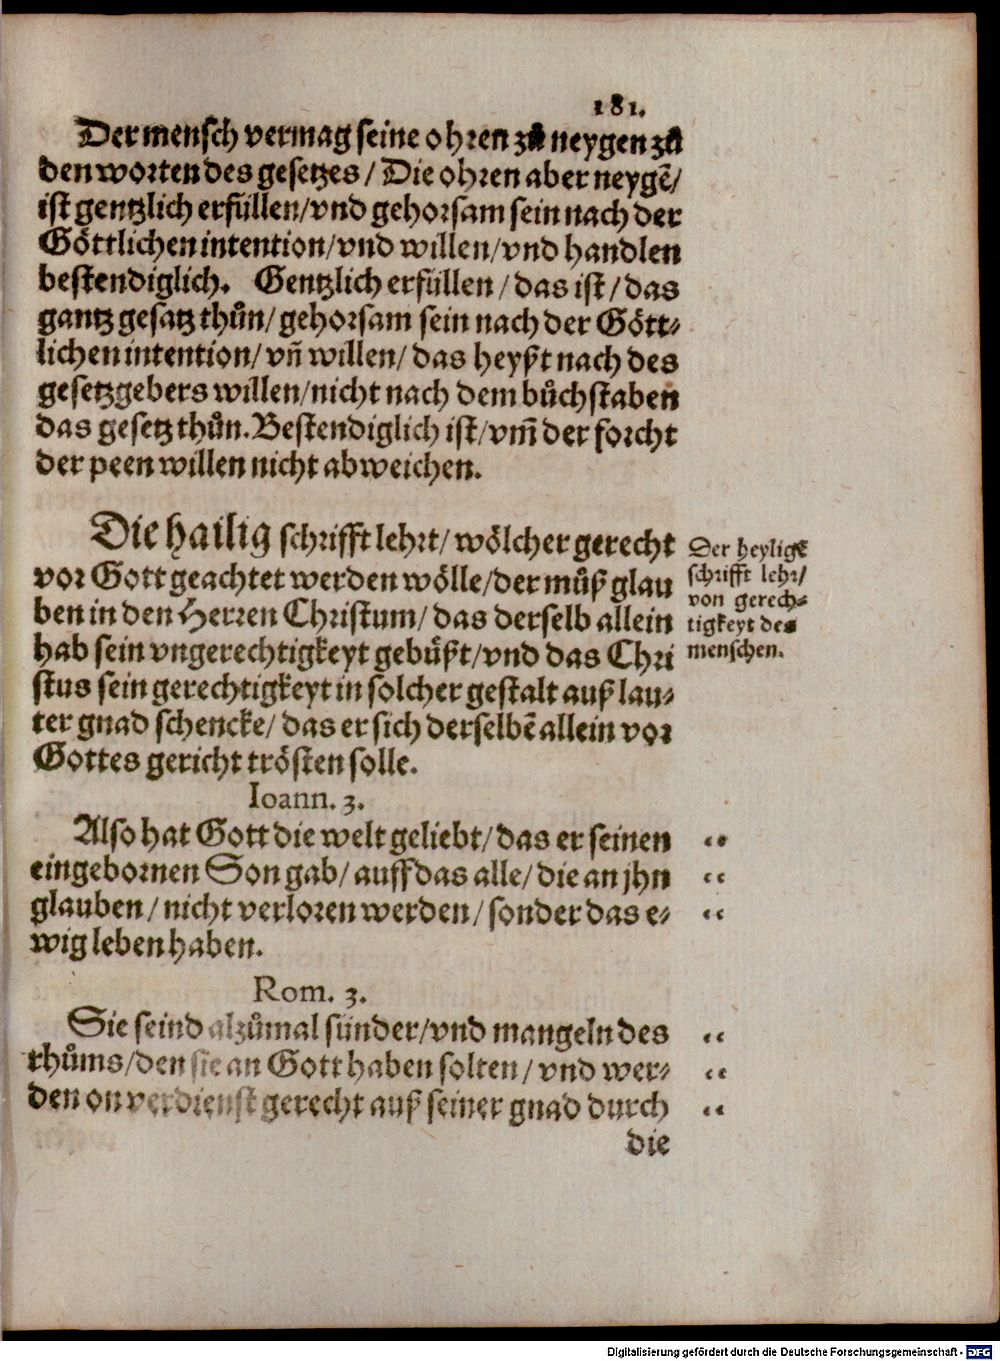 181.
Der mensch vermag seine ohren zů neygen zů
den worten des gesetzes / Die ohren aber neygẽ/
ist gentzlich erfüllen/vnd gehorsam sein nach der
Göttlichen intention/vnd willen/vnd handlen
bestendiglich. Gentzlich erfüllen / das ist / das
gantz gesatz thůn/ gehorsam sein nach der Gött⸗
lichen intention/ vñ willen/ das heyßt nach des
gesetzgebers willen/nicht nach dem bůchstaben
das gesetz thůn. Bestendiglich ist/vm̃ der forcht
der peen willen nicht abweichen.
Die hailig schrifft lehrt/ wölcher gerecht
vor Gott geachtet werden wölle/der můß glau
ben in den Herren Christum/ das derselb allein
hab sein vngerechtigkeyt gebůßt/vnd das Chri
stus sein gerechtigkeyt in solcher gestalt auß lau⸗
ter gnad schencke/ das er sich derselbẽ allein vor
Gottes gericht trösten solle.
Der heylige
schrifft lehr/
von gerech⸗
tigkeyt des
menschen.
Ioann. 3.
Also hat Gott die welt geliebt/das er seinen “
eingebornen Son gab/ auff das alle/ die an jhn “
glauben / nicht verloren werden / sonder das e⸗ “
wig leben haben.
Rom. 3.
Sie seind alzůmal sünder/vnd mangeln des “
rhůms/den sie an Gott haben solten / vnd wer⸗ “
den on verdienst gerecht auß seiner gnad durch “
die
Digitalisierung gefördert durch die Deutsche Forschungsgemeinschaft - DFG